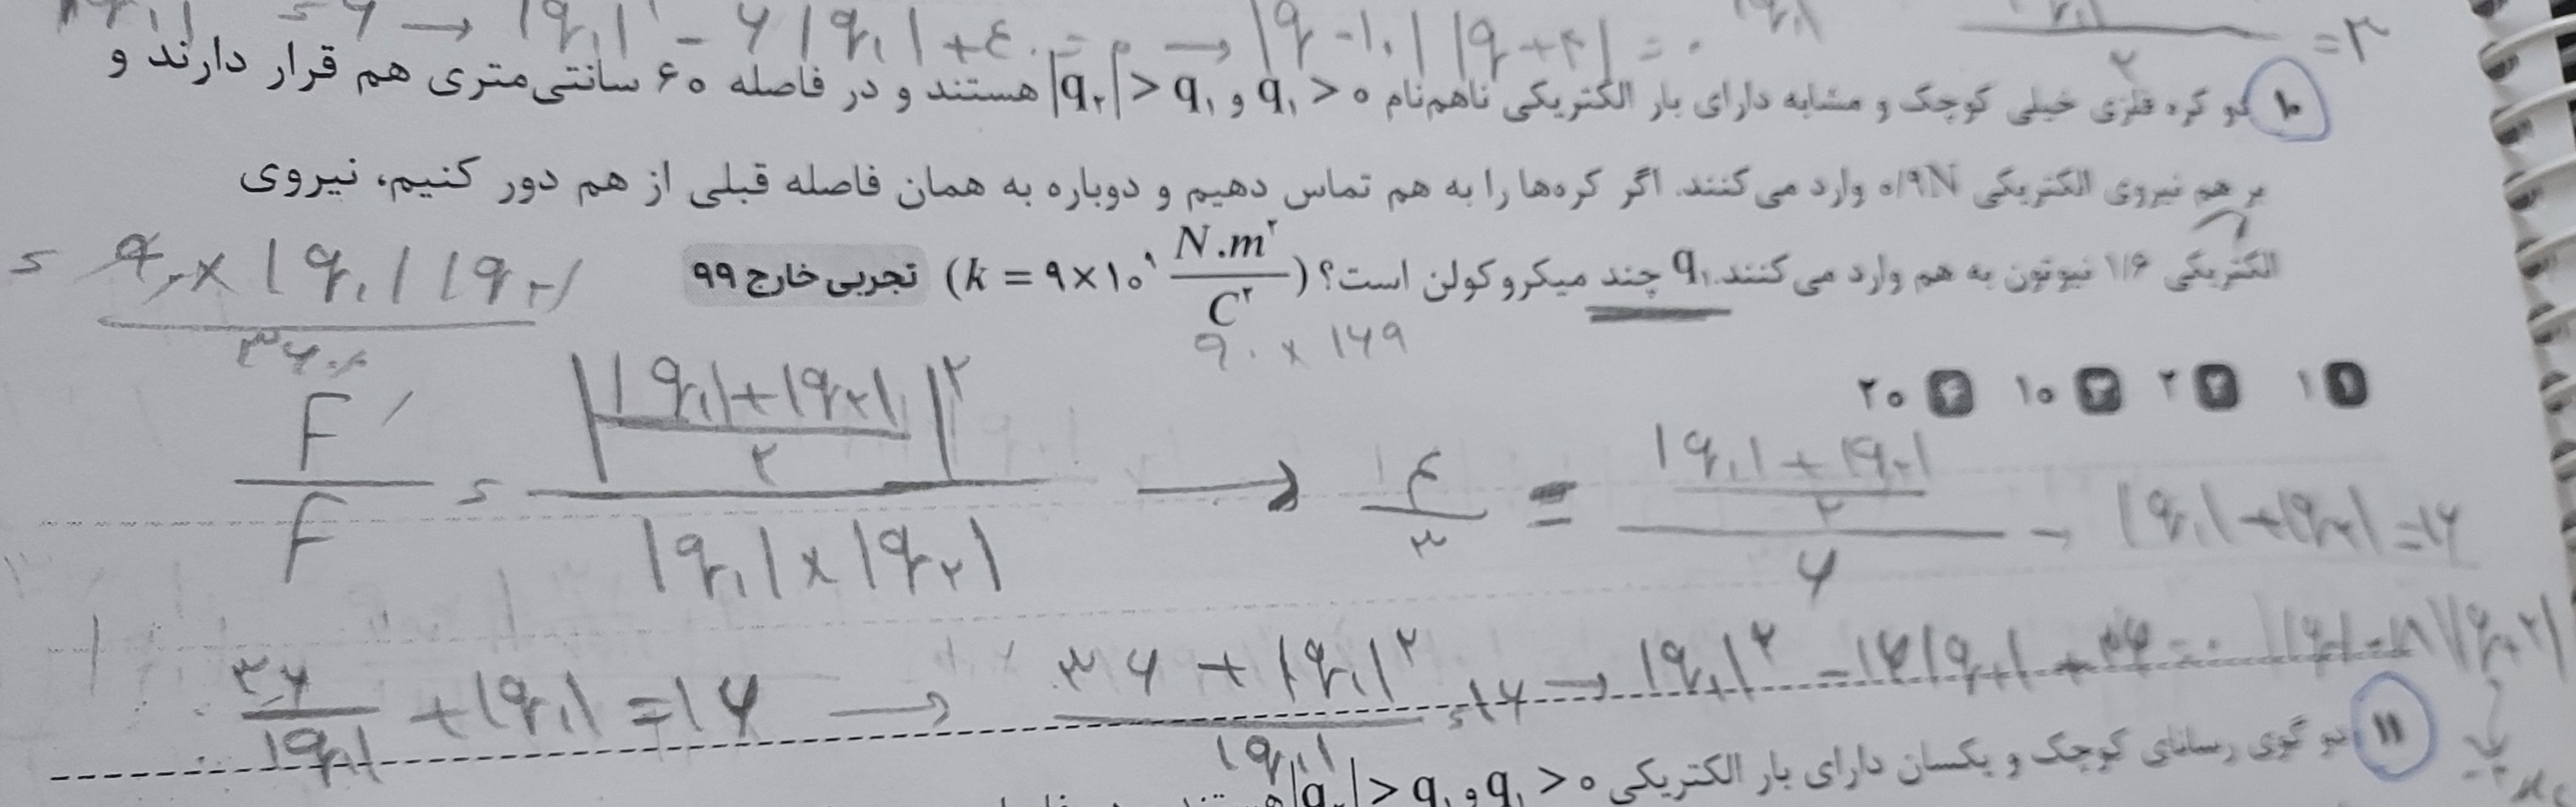 = ۶ → |q₁|² - ۶|q₁| + ۴۰ = ۰ → |q - ۱۰| |q + ۴| = ۰
۲ = ۳
۱۰ دو کره فلزی خیلی کوچک و مشابه دارای بار الکتریکی ناهم‌نام q₁ > ۰ و |q₂| > q₁ هستند و در فاصله ۶۰ سانتی‌متری هم قرار دارند و
بر هم نیروی الکتریکی ۰/۹N وارد می‌کنند. اگر کره‌ها را به هم تماس دهیم و دوباره به همان فاصله قبلی از هم دور کنیم، نیروی
الکتریکی ۱/۶ نیوتون به هم وارد می‌کنند. q₁ چند میکروکولن است؟ (k = ۹×۱۰⁹ N.m²/C²) تجربی خارج ۹۹
= ۹۰ × |q₁| |q₂| / ۳۶۰۰
۹۰ × ۱۶۹
۱ ۱ ۲ ۲ ۳ ۱۰ ۴ ۲۰
F′/F = |(|q₁| + |q₂|)/۲|² / |q₁| × |q₂| → ۴/۳ = (|q₁| + |q₂|)/۲ / ۶ → |q₁| + |q₂| = ۱۶
۳۶/|q₁| + |q₁| = ۱۶ → ۳۶ + |q₁|² / |q₁| = ۱۶ → |q₁|² - ۱۶|q₁| + ۳۶ = ۰
۱۱ دو گوی رسانای کوچک و یکسان دارای بار الکتریکی q₁ > ۰ و |q₂| > q₁ هستند